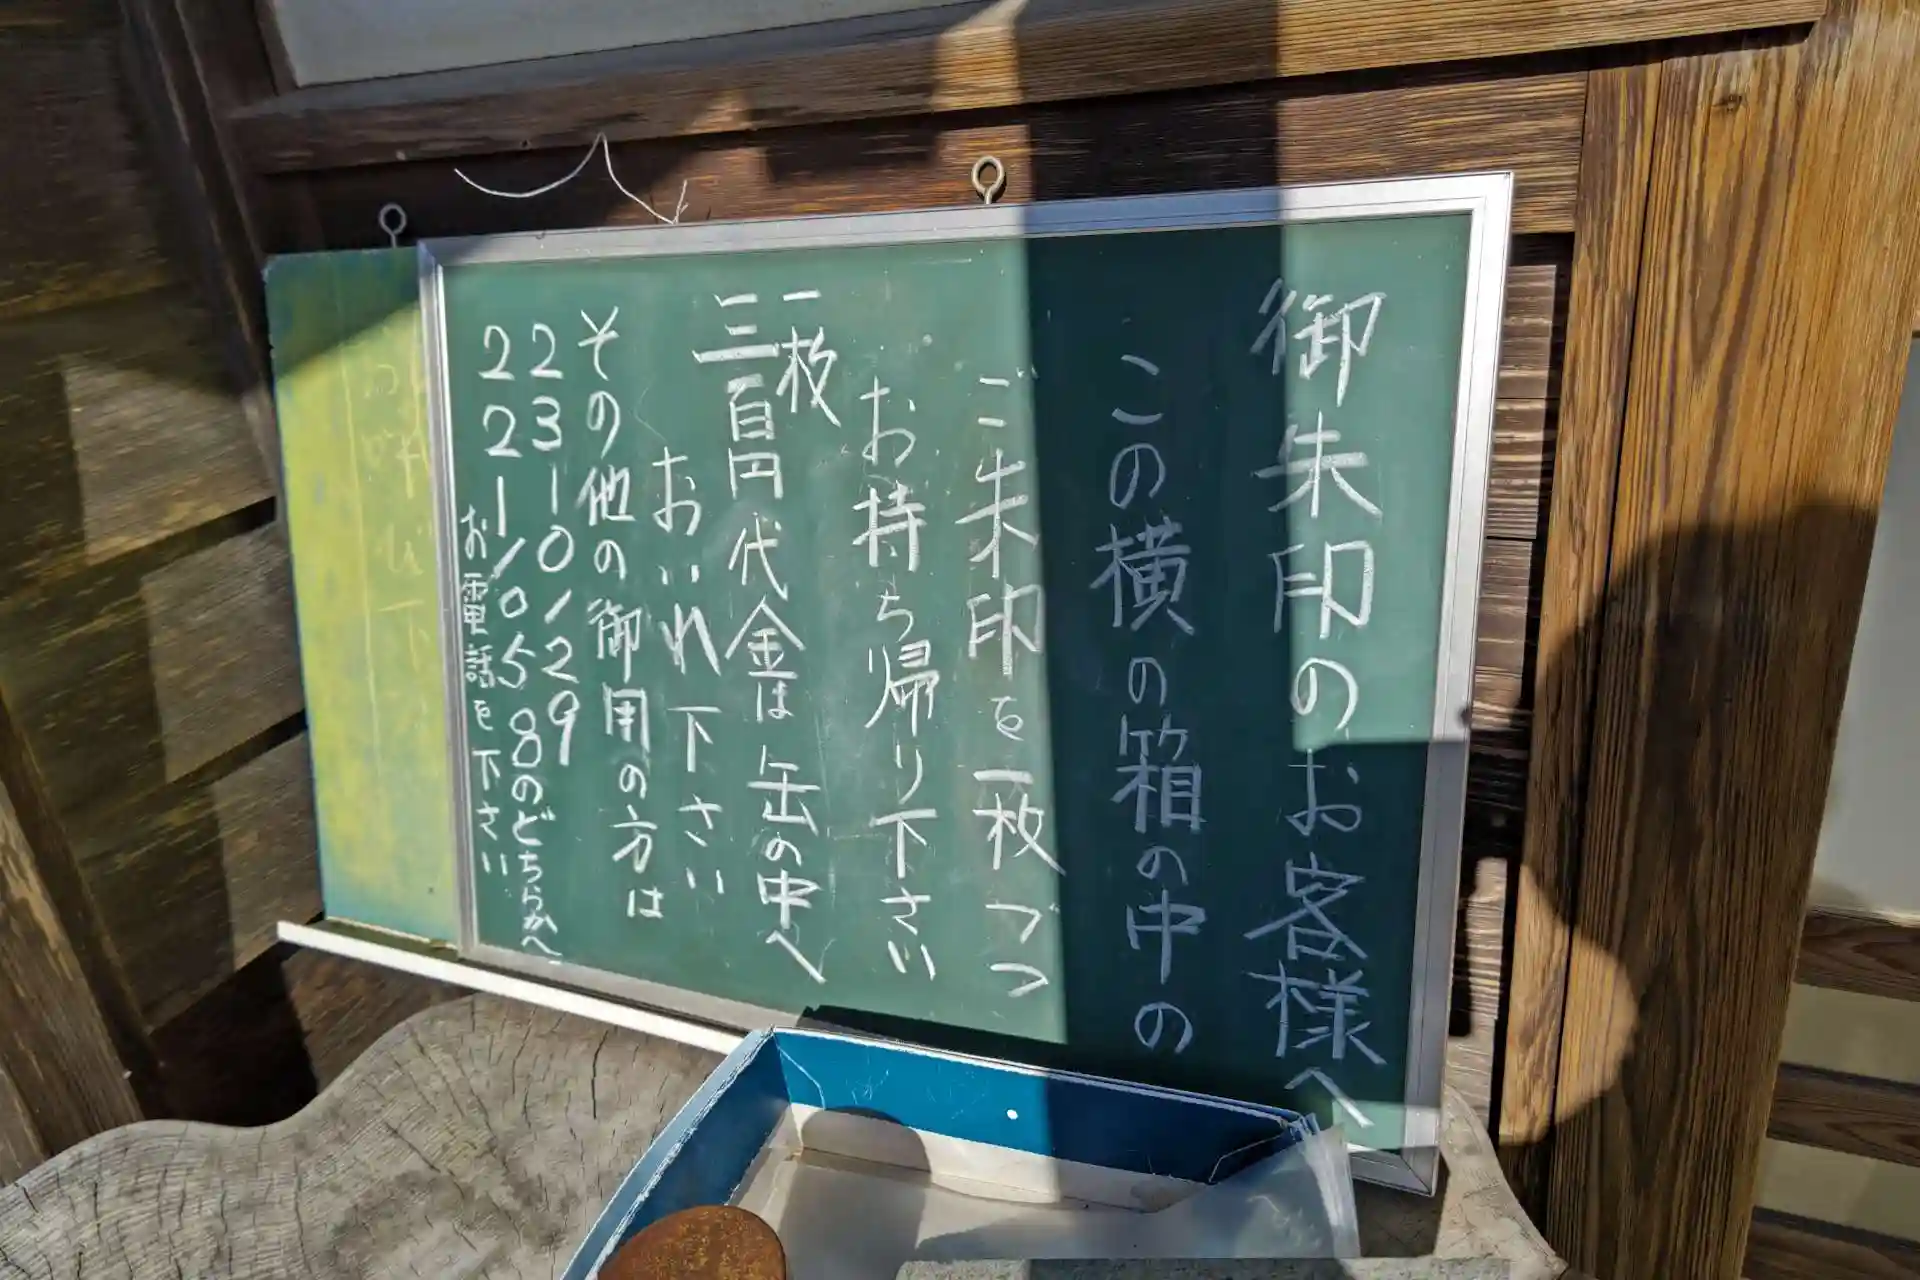 御朱印のお客様へ
この横の箱の中の
ご朱印を一枚づつ
お持ち帰り下さい
一枚
三百円代金は缶の中へ
おいれ下さい
その他の御用の方は
23-10/29
22-1/058のどちらかへ
お電話を下さい